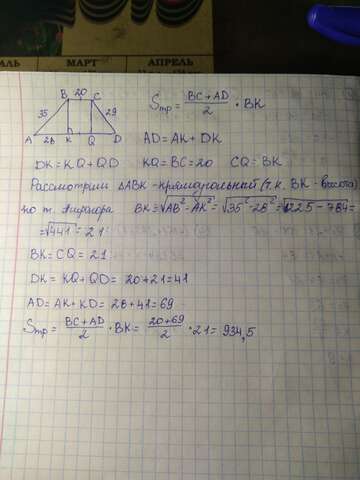 МАРТ
АПРЕЛЬ
B 20 C
35
29
A 28 K Q D
Sтр = (BC+AD)/2 · BK
AD = AK + DK
DK = KQ + QD KQ = BC = 20 CQ = BK
Рассмотрим ΔABK - прямоугольный (т.к. BK - высота)
по т. Пифагора BK = √(AB² - AK²) = √(35² - 28²) = √(1225 - 784) =
= √441 = 21
BK = CQ = 21
DK = KQ + QD = 20 + 21 = 41
AD = AK + KD = 28 + 41 = 69
Sтр = (BC+AD)/2 · BK = (20+69)/2 · 21 = 934,5